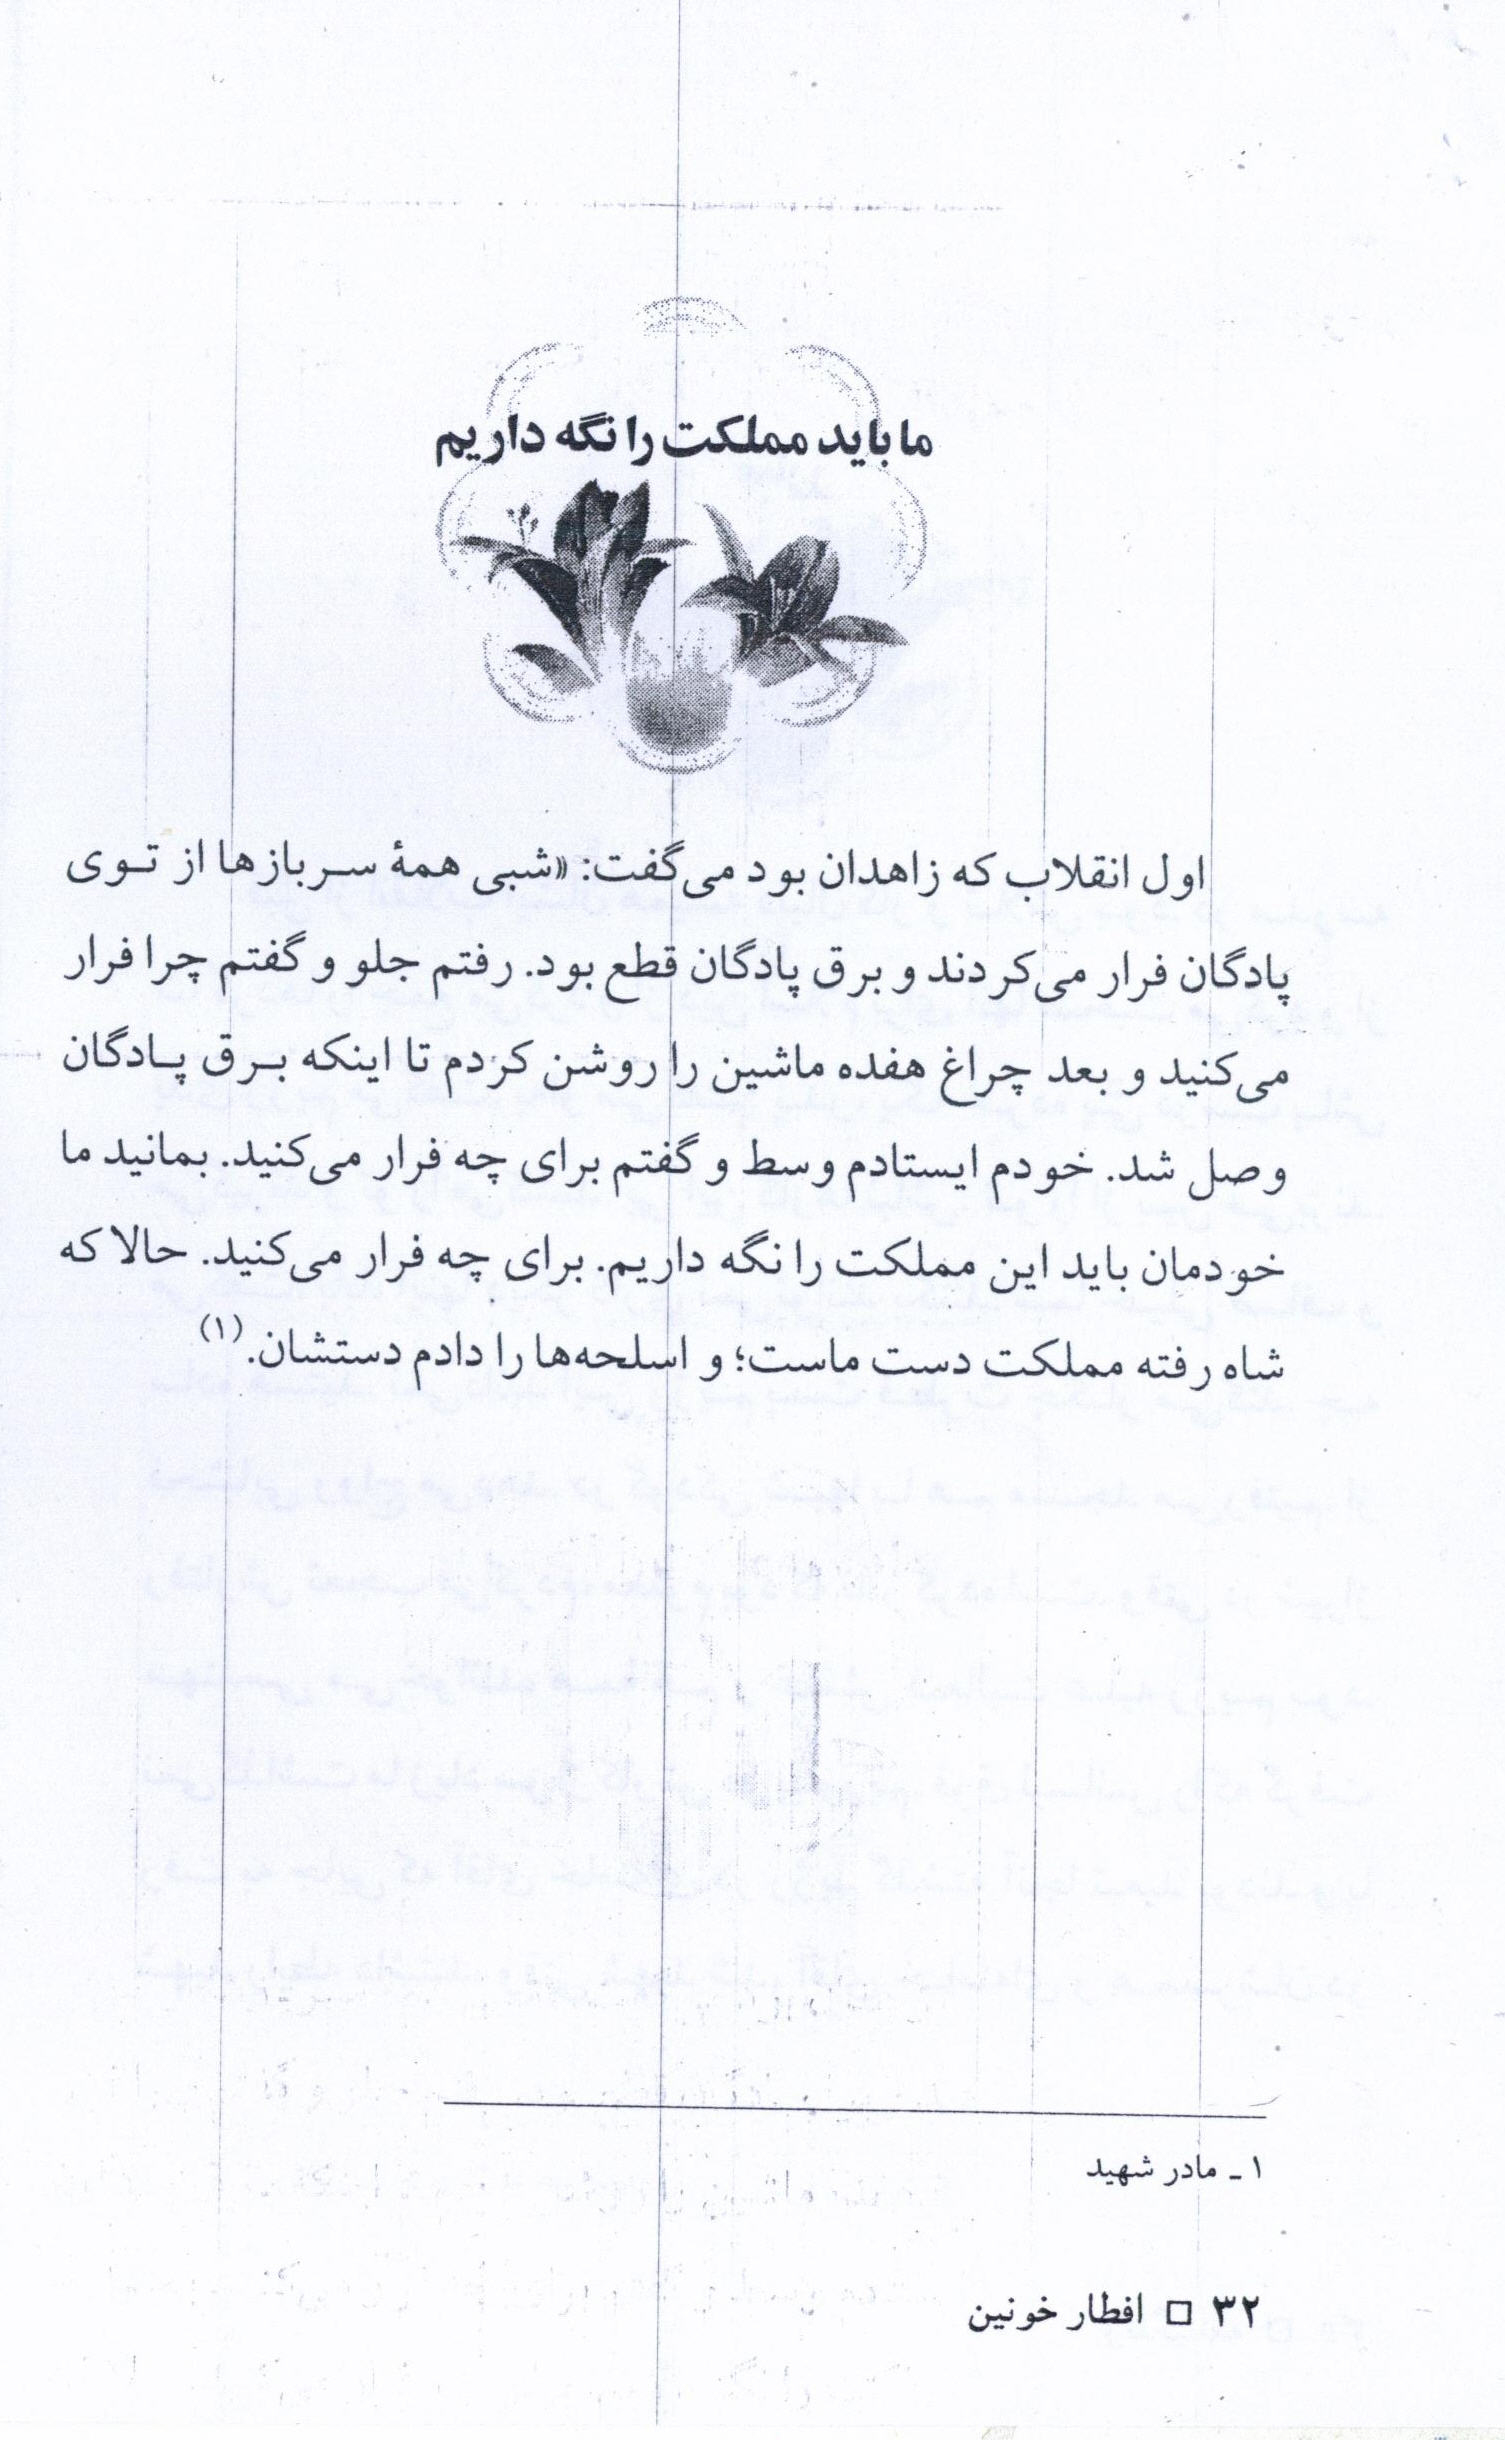 ما باید مملکت را نگه داریم
اول انقلاب که زاهدان بود می‌گفت: «شبی همهٔ سربازها از توی
پادگان فرار می‌کردند و برق پادگان قطع بود. رفتم جلو و گفتم چرا فرار
می‌کنید و بعد چراغ هفده ماشین را روشن کردم تا اینکه برق پادگان
وصل شد. خودم ایستادم وسط و گفتم برای چه فرار می‌کنید. بمانید ما
خودمان باید این مملکت را نگه داریم. برای چه فرار می‌کنید. حالا که
شاه رفته مملکت دست ماست؛ و اسلحه‌ها را دادم دستشان.(۱)
۱ ـ مادر شهید
۳۲ □ افطار خونین